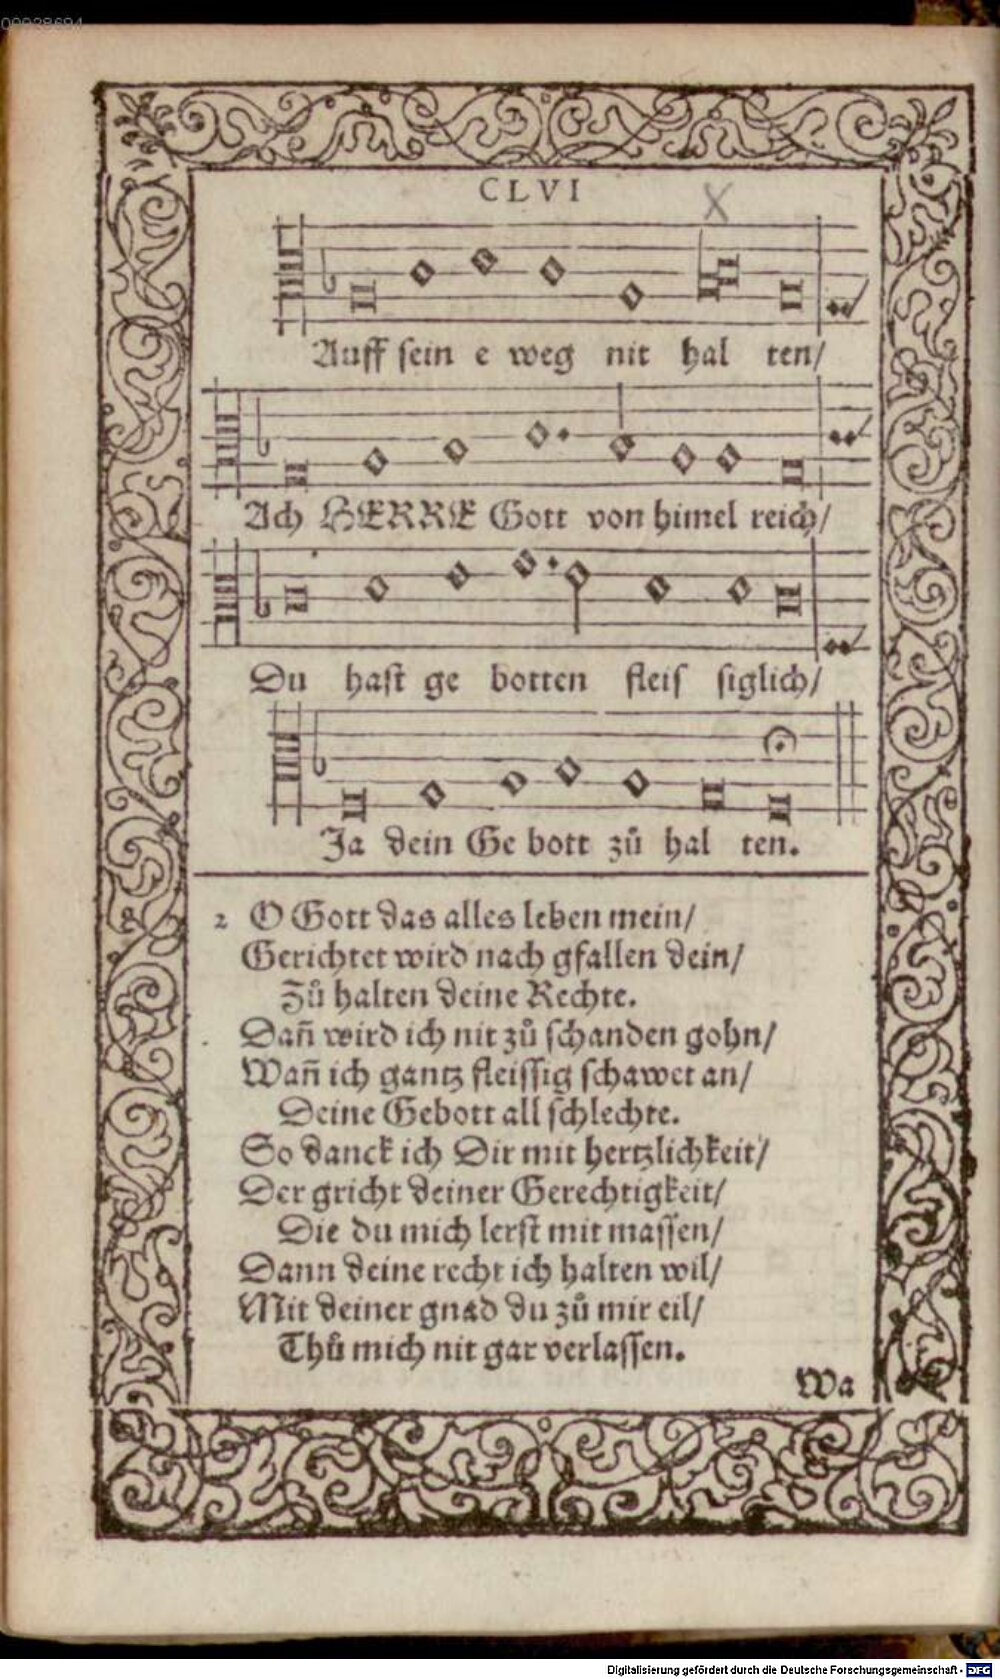 00028694
CLVI
X
Auff sein e weg nit hal ten/
Ach HERRE Gott von himel reich/
Du hast ge botten fleis siglich/
Ja dein Ge bott zů hal ten.
2 O Gott das alles leben mein/
Gerichtet wird nach gfallen dein/
Zů halten deine Rechte.
Dañ wird ich nit zů schanden gohn/
Wañ ich gantz fleissig schawet an/
Deine Gebott all schlechte.
So danck ich Dir mit hertzlichkeit/
Der gricht deiner Gerechtigkeit/
Die du mich lerst mit massen/
Dann deine recht ich halten wil/
Mit deiner gnad du zů mir eil/
Thů mich nit gar verlassen.
Wa
Digitalisierung gefördert durch die Deutsche Forschungsgemeinschaft - DFG